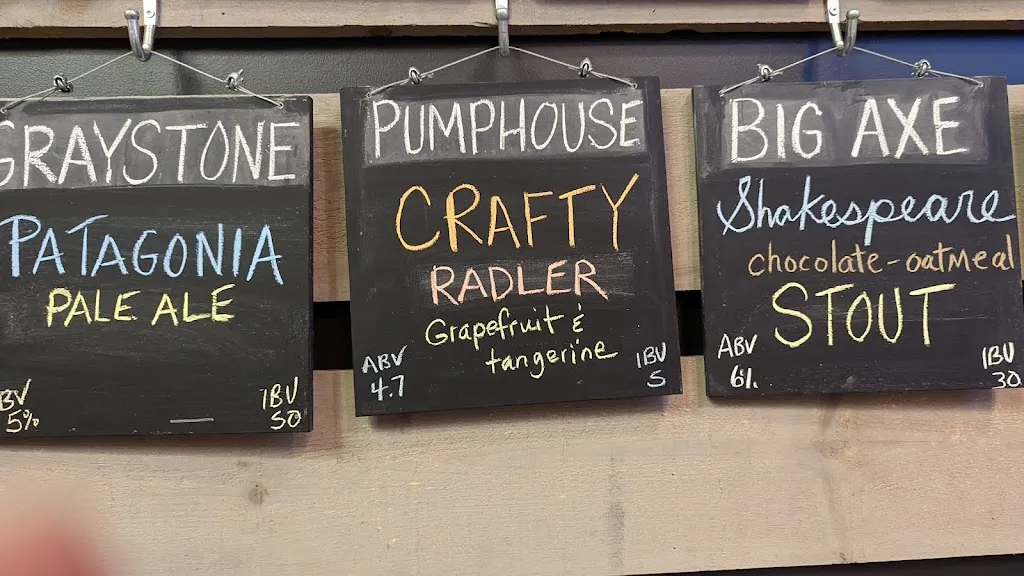 GRAYSTONE
PATAGONIA
PALE ALE
ABV
5%
IBU
50
PUMPHOUSE
CRAFTY
RADLER
Grapefruit &
tangerine
ABV
4.7
IBU
5
BIG AXE
Shakespeare
chocolate-oatmeal
STOUT
ABV
6%
IBU
30